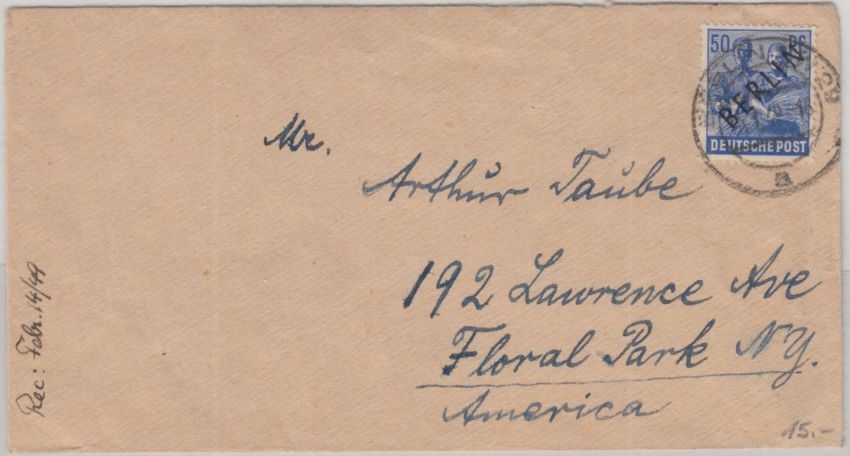 50 Pf
BERLIN
DEUTSCHE POST
a
Mr.
Arthur Taube
192 Lawrence Ave
Floral Park NY.
America
Rec: Febr. 14/49
15.-